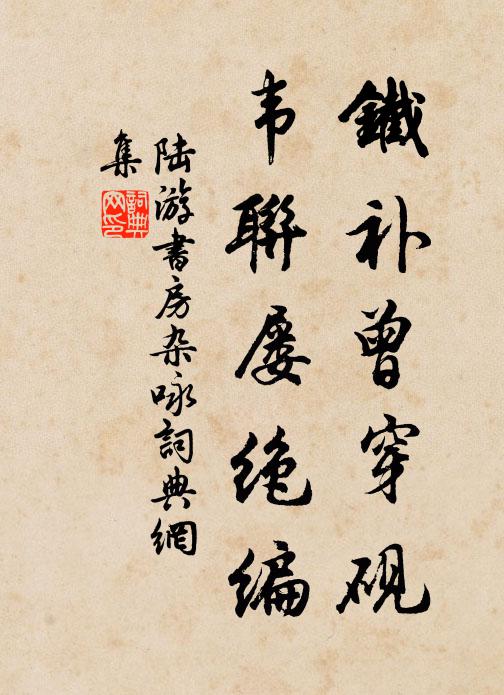 鐵补曾穿硯
韦聯屡绝编
陆游書房杂咏詞典網
集
詞典
网印